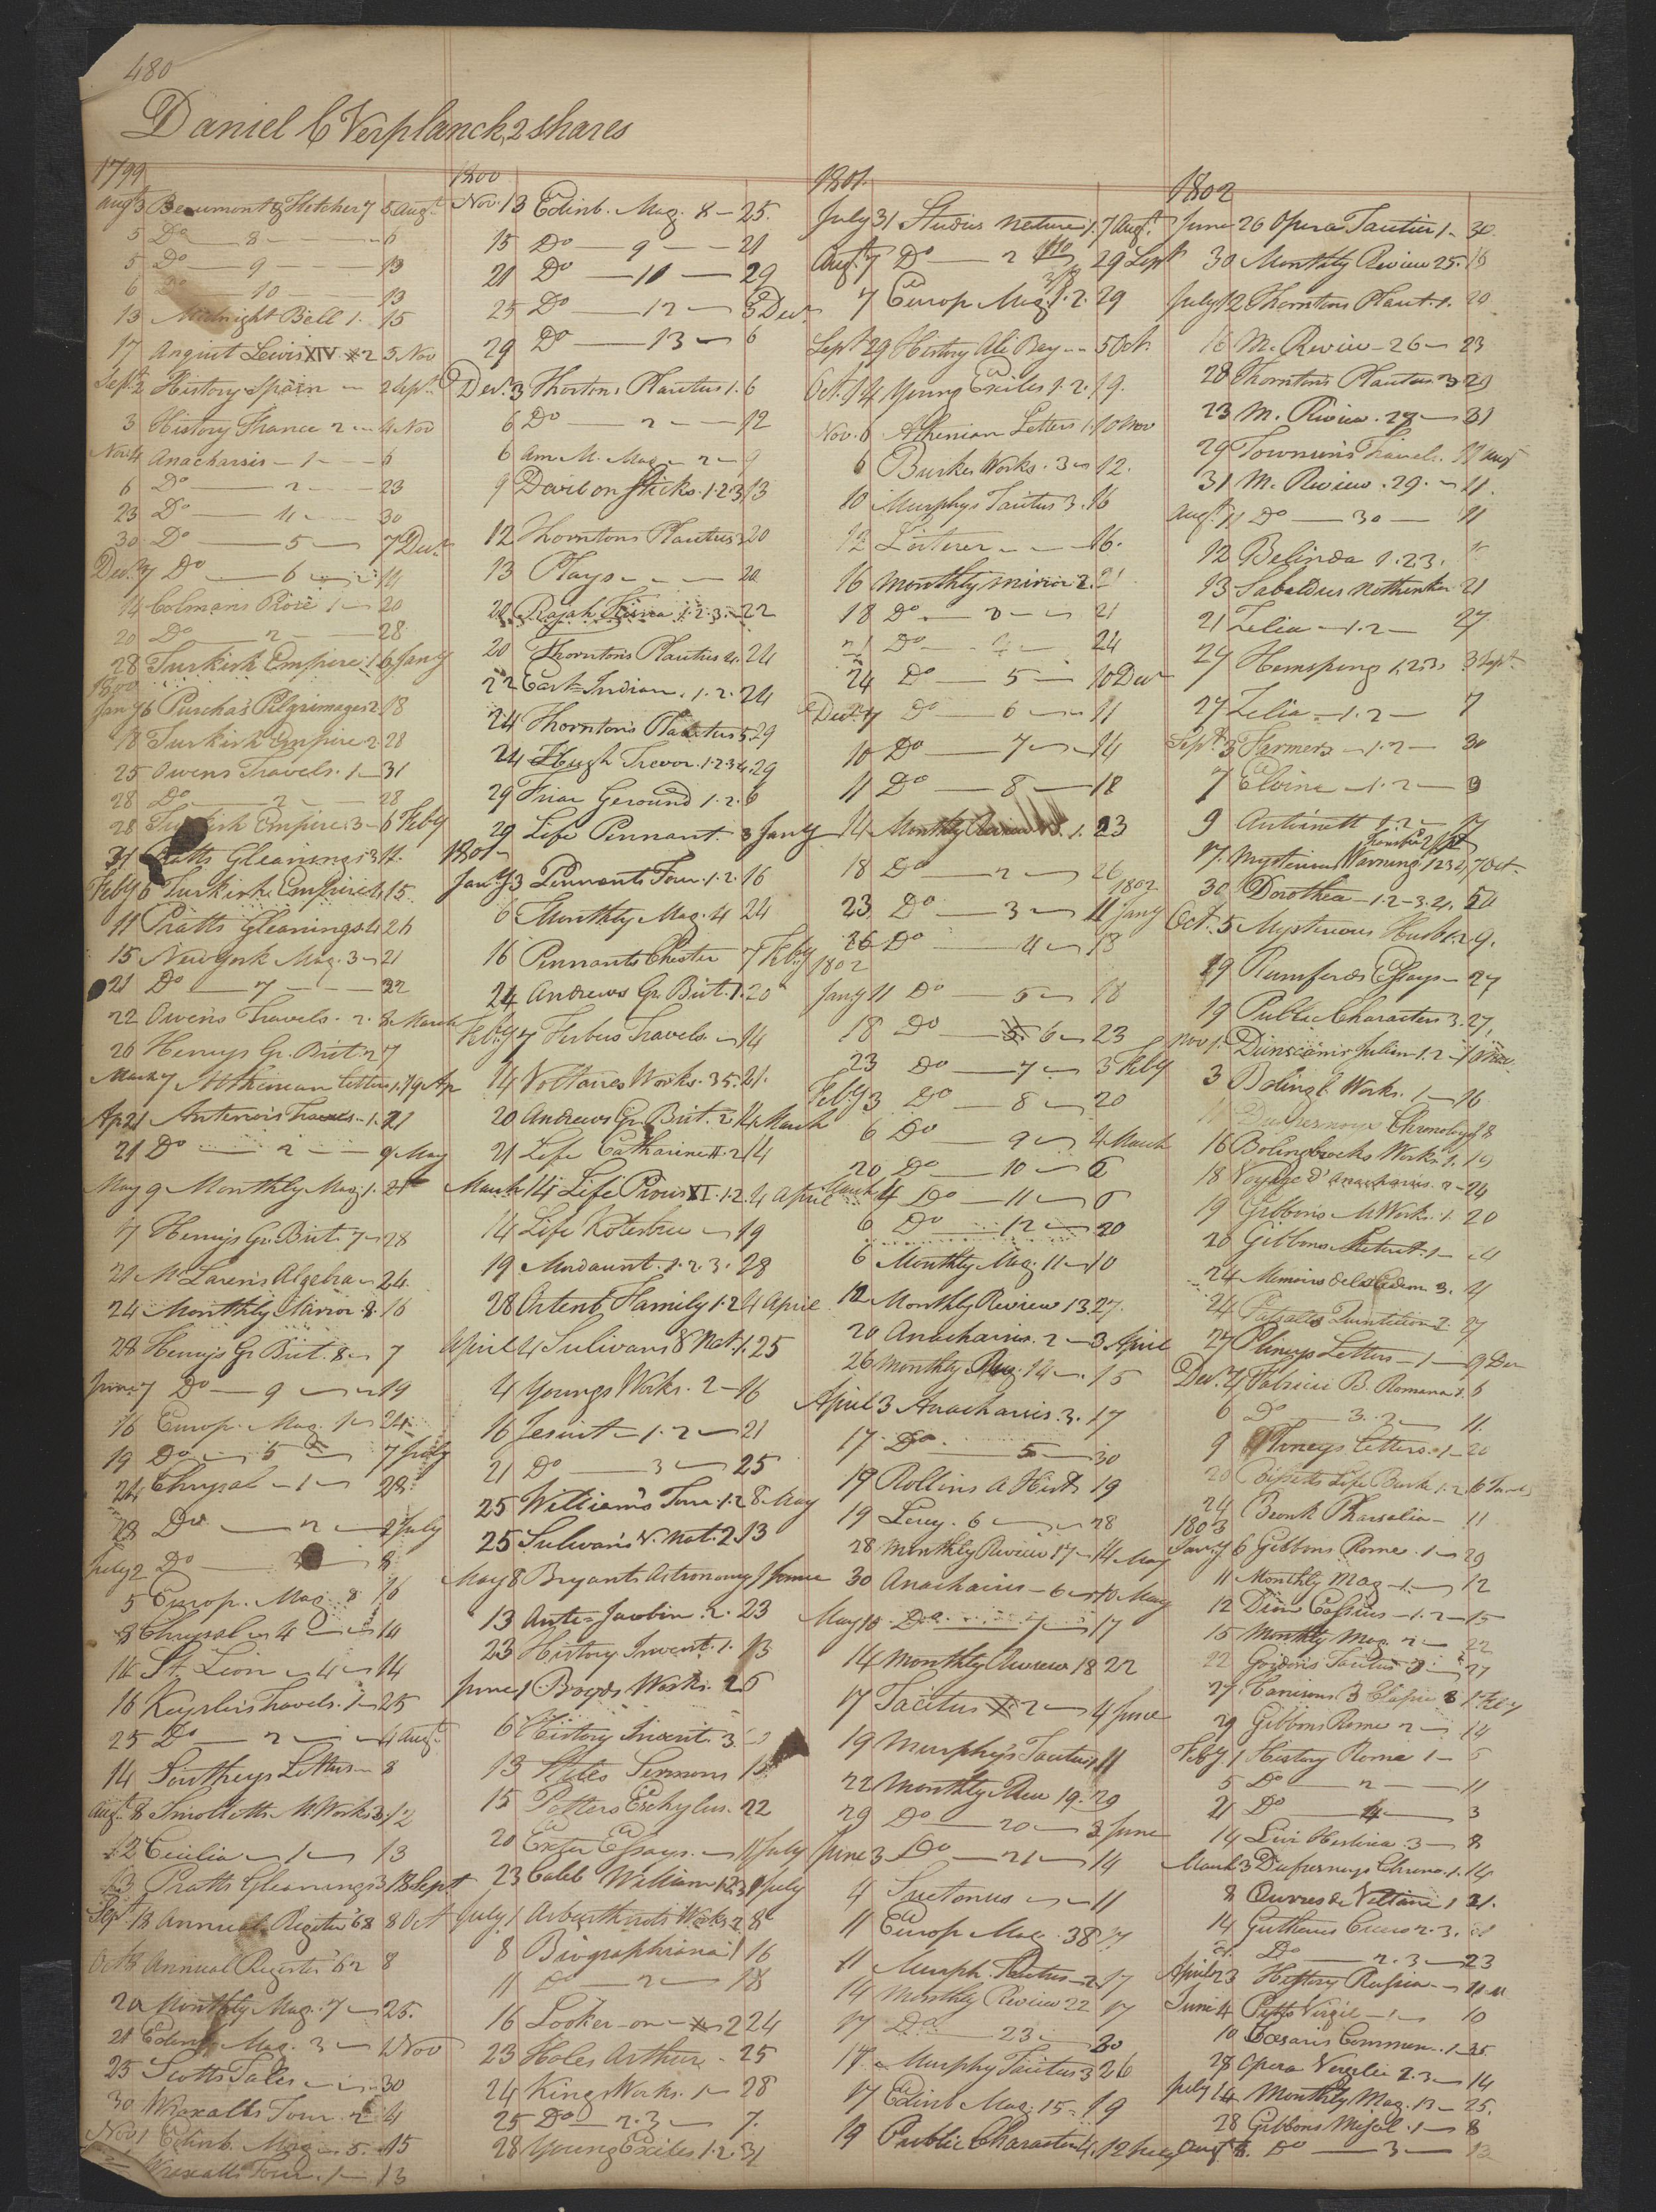 480
Daniel C Verplanck, 2 shares
1799
Augt 3 Beaumont & Fletcher 7 5 Augt
5 Do 8 6
5 Do 9 13
6 Do 10 13
13 Midnight Bell 1. 15
17 Anquist Lewis XIV. 2 3 Nov
Sept 2 History Spain 2 Sept
3 History France 2 4 Nov
Nov 4 Anacharsis 1 6
6 Do 2 23
23 Do 4 30
30 Do 5 7 Decr
Decr 7 Do 6 14
14 Colmans Prose 1 20
20 Do 2 28
28 Turkish Empire 1 6 Jany
1800
Jany 6 Purcha's Pilgrimages 2. 18
18 Turkish Empire 2. 28
25 Owens Travels. 1 31
28 Do 2 28
28 Turkish Empire 3 6 Feby
31 Pratts Gleanings 3 11.
Feby 6 Turkish Empire 4 15.
11 Pratts Gleanings 4 26
15 New York Mag. 3 21
21 Do 7 22
22 Owens Travels. 2. 8 March
26 Henrys Gr. Brit. 2 7
March 7 Athenian Letters 1. 19 Ap
Ap 21 Antenors Travels 1. 21
21 Do 2 9 May
May 9 Monthly Mag. 1. 21
7 Henrys Gr. Brit. 7 28
21 McLarens Algebra 24.
24 Monthly Mirror 8. 16
28 Henrys Gr Brit. 8 7
June 7 Do 9 19
16 Europ. Mag. 1 24
19 Do 5 7 July
24 Chrysal 1 28
28 Do 2 2 July
July 2 Do 3 8
5 Europ. Mag. 8 16
8 Chrysal 4 14
14 St. Leon 4 14
16 Keyslers Travels. 1 25
25 Do 2 4 Augt
14 Southeys Letters 8
Augt 8 Smolletts M. Works 3. 12
12 Cecilia 1 13
13 Pratts Gleanings 3 18 Sept
Sept 18 Annual Register '68 8 Oct
Oct 8 Annual Register '62 8
20 Monthly Mag. 7 25.
21 Edinb. Mag. 3 1 Nov
25 Scotts Tales 30
30 Wraxalls Tour. 2 4
Nov 1 Edinb. Mag. 5. 15
Wraxalls Tour. 1 13
1800
Nov. 13 Edinb. Mag. 8 25.
15 Do 9 21
21 Do 11 29
25 Do 12 3 Decr
29 Do 13 6
Decr. 3 Thortons Plautus 1. 6
6 Do 2 12
6 Am. M. Mag. 2 9
9 Devil on Sticks. 1.2.3 13
12 Thorntons Plautus 3 20
13 Plays 20
20 Rajah Kisna 1.2.3. 22
20 Thorntons Plautus 4. 24
22 East Indian. 1.2. 24
24 Thorntons Plautus 5. 29
24 Hugh Trevor. 1.2.3.4. 29
29 Friar Geround 1.2. 6
29 Life Pennant. 3 Jany
1801
Jany 3 Pennants Tour. 1.2. 16
6 Monthly Mag. 4 24
16 Pennants Chester 7 Feby
24 Andrews Gr. Brit. 1. 20
Feby 7 Forbes Travels 14
14 Voltaires Works. 35. 21.
20 Andrews Gr. Brit. 2. 14 March
21 Life Catharine II. 2 14
March 14 Life Pious XI. 1.2. 4 April
14 Life Kotzebue 19
19 Mordaunt. 1.2.3. 28
28 Ortenb. Family 1.2 4 April
April 4 Sulivans V Nat. 1. 25
4 Youngs Works. 2 16
16 Jesuit 1.2 21
21 Do 3 25
25 Williams Tour. 1.2 8 May
25 Sulivans V. Nat. 2 13
May 8 Bryants Astronomy 1 June
13 Anti-Jacobin. 2. 23
23 History Invent. 1. 13
June 1 Boyds Works. 2 6
6 History Invent. 3.
13 Sermons 15
15 Potters Eschylus. 22
20 Exeter Essays. 1 July
23 Caleb William 1.2.3 1 July
July 1 Arbuthnots Works 2 8
8 Biographiana 1 16
11 Do 2 18
16 Looker-on 2 24
23 Holes Arthur. 25
24 Kings Works. 1 28
25 Do 2.3 7.
28 Young Exiles 1.2. 31
1801
July 31 Studies Nature 1. 7 Augt.
Augt. 7 Do 2 29 Sept
7 Europ Mag. 1.2. 29
Sept 29 History Ali Bey 5 Oct.
Oct. 14 Young Exiles 1.2. 19.
Nov. 6 Athenian Letters 1. 10 Nov
6 Burkes Works. 3 12.
10 Murphys Tacitus 3. 16
12 Loiterer 16.
16 Monthly Mirror 2. 21
18 Do 3 21
21 Do 4 24
24 Do 5 10 Decr
Decr. 7 Do 6 11
10 Do 7 14
11 Do 8 18
14 Monthly Review 1. 23
18 Do 2 26
1802
23 Do 3 11 Jany
26 Do 4 13
1802
Jany 11 Do 5 18
18 Do 6 23
23 Do 7 3 Feby
Feby 3 Do 8 20
6 Do 9 4 March
20 Do 10 6
March 4 Do 11 6
6 Do 12 20
6 Monthly Mag. 11 10
12 Monthly Review 13. 27.
20 Anacharsis. 2 3 April
26 Monthly Rev. 14. 15
April 3 Anacharsis. 3. 17
17. Do. 5 30
19 Rollins A Hist. 19
19 Livy. 6 28
28 Monthly Review 17 14 May
30 Anacharsis 6 10 May
May 10 Do 7 17
14 Monthly Review 18 22
17 Tacitus 2 4 June
19 Murphys Tacitus 1 11
22 Monthly Rev. 19. 29
29 Do 20 3 June
June 3 Do 21 14
4 Suetonius 11
11 Europ Mag. 38 17
11 Murph. Tacitus 2 17
14 Monthly Review 22 17
17 Do 23 20
17 Murphy Tacitus 3 26
17 Edinb Mag. 15. 19
19 Public Characters 4. 12 July
1802
June 26 Opera Tacitii 1. 30.
30 Monthly Review 25. 16
July 12 Thorntons Plaut. 1. 20
16 M. Review 26 23
28 Thorntons Plautus 3 29
23 M. Review. 27 31
29 Townsons Travels. 11 Augt
31 M. Review. 29. 11.
Augt. 11 Do 30 11
12 Belinda 1.2.3.
13 Sabaldus Nothenker 21
21 Zelia 1.2 27
27 Hermsprong 1.2.3. 3 Sept
27 Zelia 1.2 7
Sept 3 Farmers 1.2 30
7 Eloine 1.2 9
9 Antoinett 1.2 17
17. Mysterious Warning 1.2.3.4 7 Oct.
30 Dorothea 1.2-3.4.
Oct. 5 Mysterious Husb. 1.2. 9.
19 Rumfords Essays 27
19 Public Characters 3. 27.
Nov 1. Julian 1.2
3 Boling b. Works. 1 16
Dufresnoys Chronology 18
16 Bolingbrocks Works. 1. 19
18 Voyage d'Anacharsis. 2 24
19 Gibbons M Works. 1. 20
20 Gibbons 1
24 Memoires de lAcadem 3. 4
24 Quintilion 2 27
27 Plinys Letters 1 9 Dec
Decr. 4 B. Romana 1. 6
6 Do 3.2 11.
9 Plineys Letters. 1 20
20 Bissetts Life Burke 1.2. 6 Jany
24 Pharsalia 11
1803
Jany 6 Gibbons Rome. 1 29
11 Monthly Mag. 1 12
12 Dion Cassius 1.2 15
15 Monthly Mag. 2 22
22 Gordons Tacitus 3 27
27. Harrisons 3 1 Feby
29 Gibbons Rome 2 14
Feby 1 History Rome 1 5
5 Do 2 11
21 Do 4 3
14 Livi Historia. 3 8
March 3 Dufresnoys Chrono. 1. 14
8 Ouvres de Voltaire 1 21.
14 Guthries Cicero 2.3.
21 Do 2.3 23
April 23 History Russia
June 4 Pitts Virgil 1 10
10 Cæsaris Commen. 1 25
28 Opera Vergilii 2.3 14
July 14 Monthly Mag. 13 25.
28 Gibbons Miscel. 1 8
Augt. 8. Do 3 12